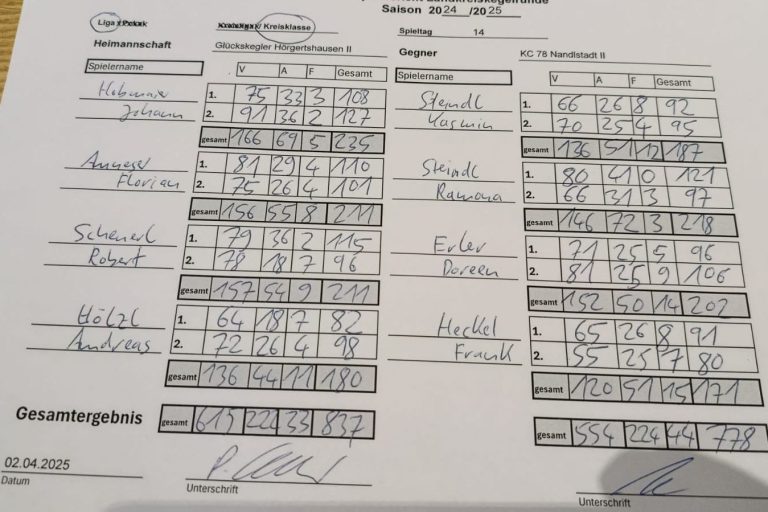 Landkreiskegelrunde
Saison 2024 /2025
Liga / Pokal Kreisliga / Kreisklasse Spieltag 14
Heimannschaft Glückskegler Hörgertshausen II Gegner KC 78 Nandlstadt II
Spielername V A F Gesamt Spielername V A F Gesamt
Hobmaier 1. 75 33 3 108 Steindl 1. 66 26 8 92
Johann 2. 91 36 2 127 Yasmin 2. 70 25 4 95
gesamt 166 69 5 235 gesamt 136 51 12 187
Anneser 1. 81 29 4 110 Steindl 1. 80 41 0 121
Florian 2. 75 26 4 101 Ramona 2. 66 31 3 97
gesamt 156 55 8 211 gesamt 146 72 3 218
Scheuerl 1. 79 36 2 115 Erler 1. 71 25 5 96
Robert 2. 78 18 7 96 Doreen 2. 81 25 9 106
gesamt 157 54 9 211 gesamt 152 50 14 202
Hölzl 1. 64 18 7 82 Heckel 1. 65 26 8 91
Andreas 2. 72 26 4 98 Frank 2. 55 25 7 80
gesamt 136 44 11 180 gesamt 120 51 15 171
Gesamtergebnis gesamt 615 222 33 837 gesamt 554 224 44 778
02.04.2025
Datum Unterschrift Unterschrift